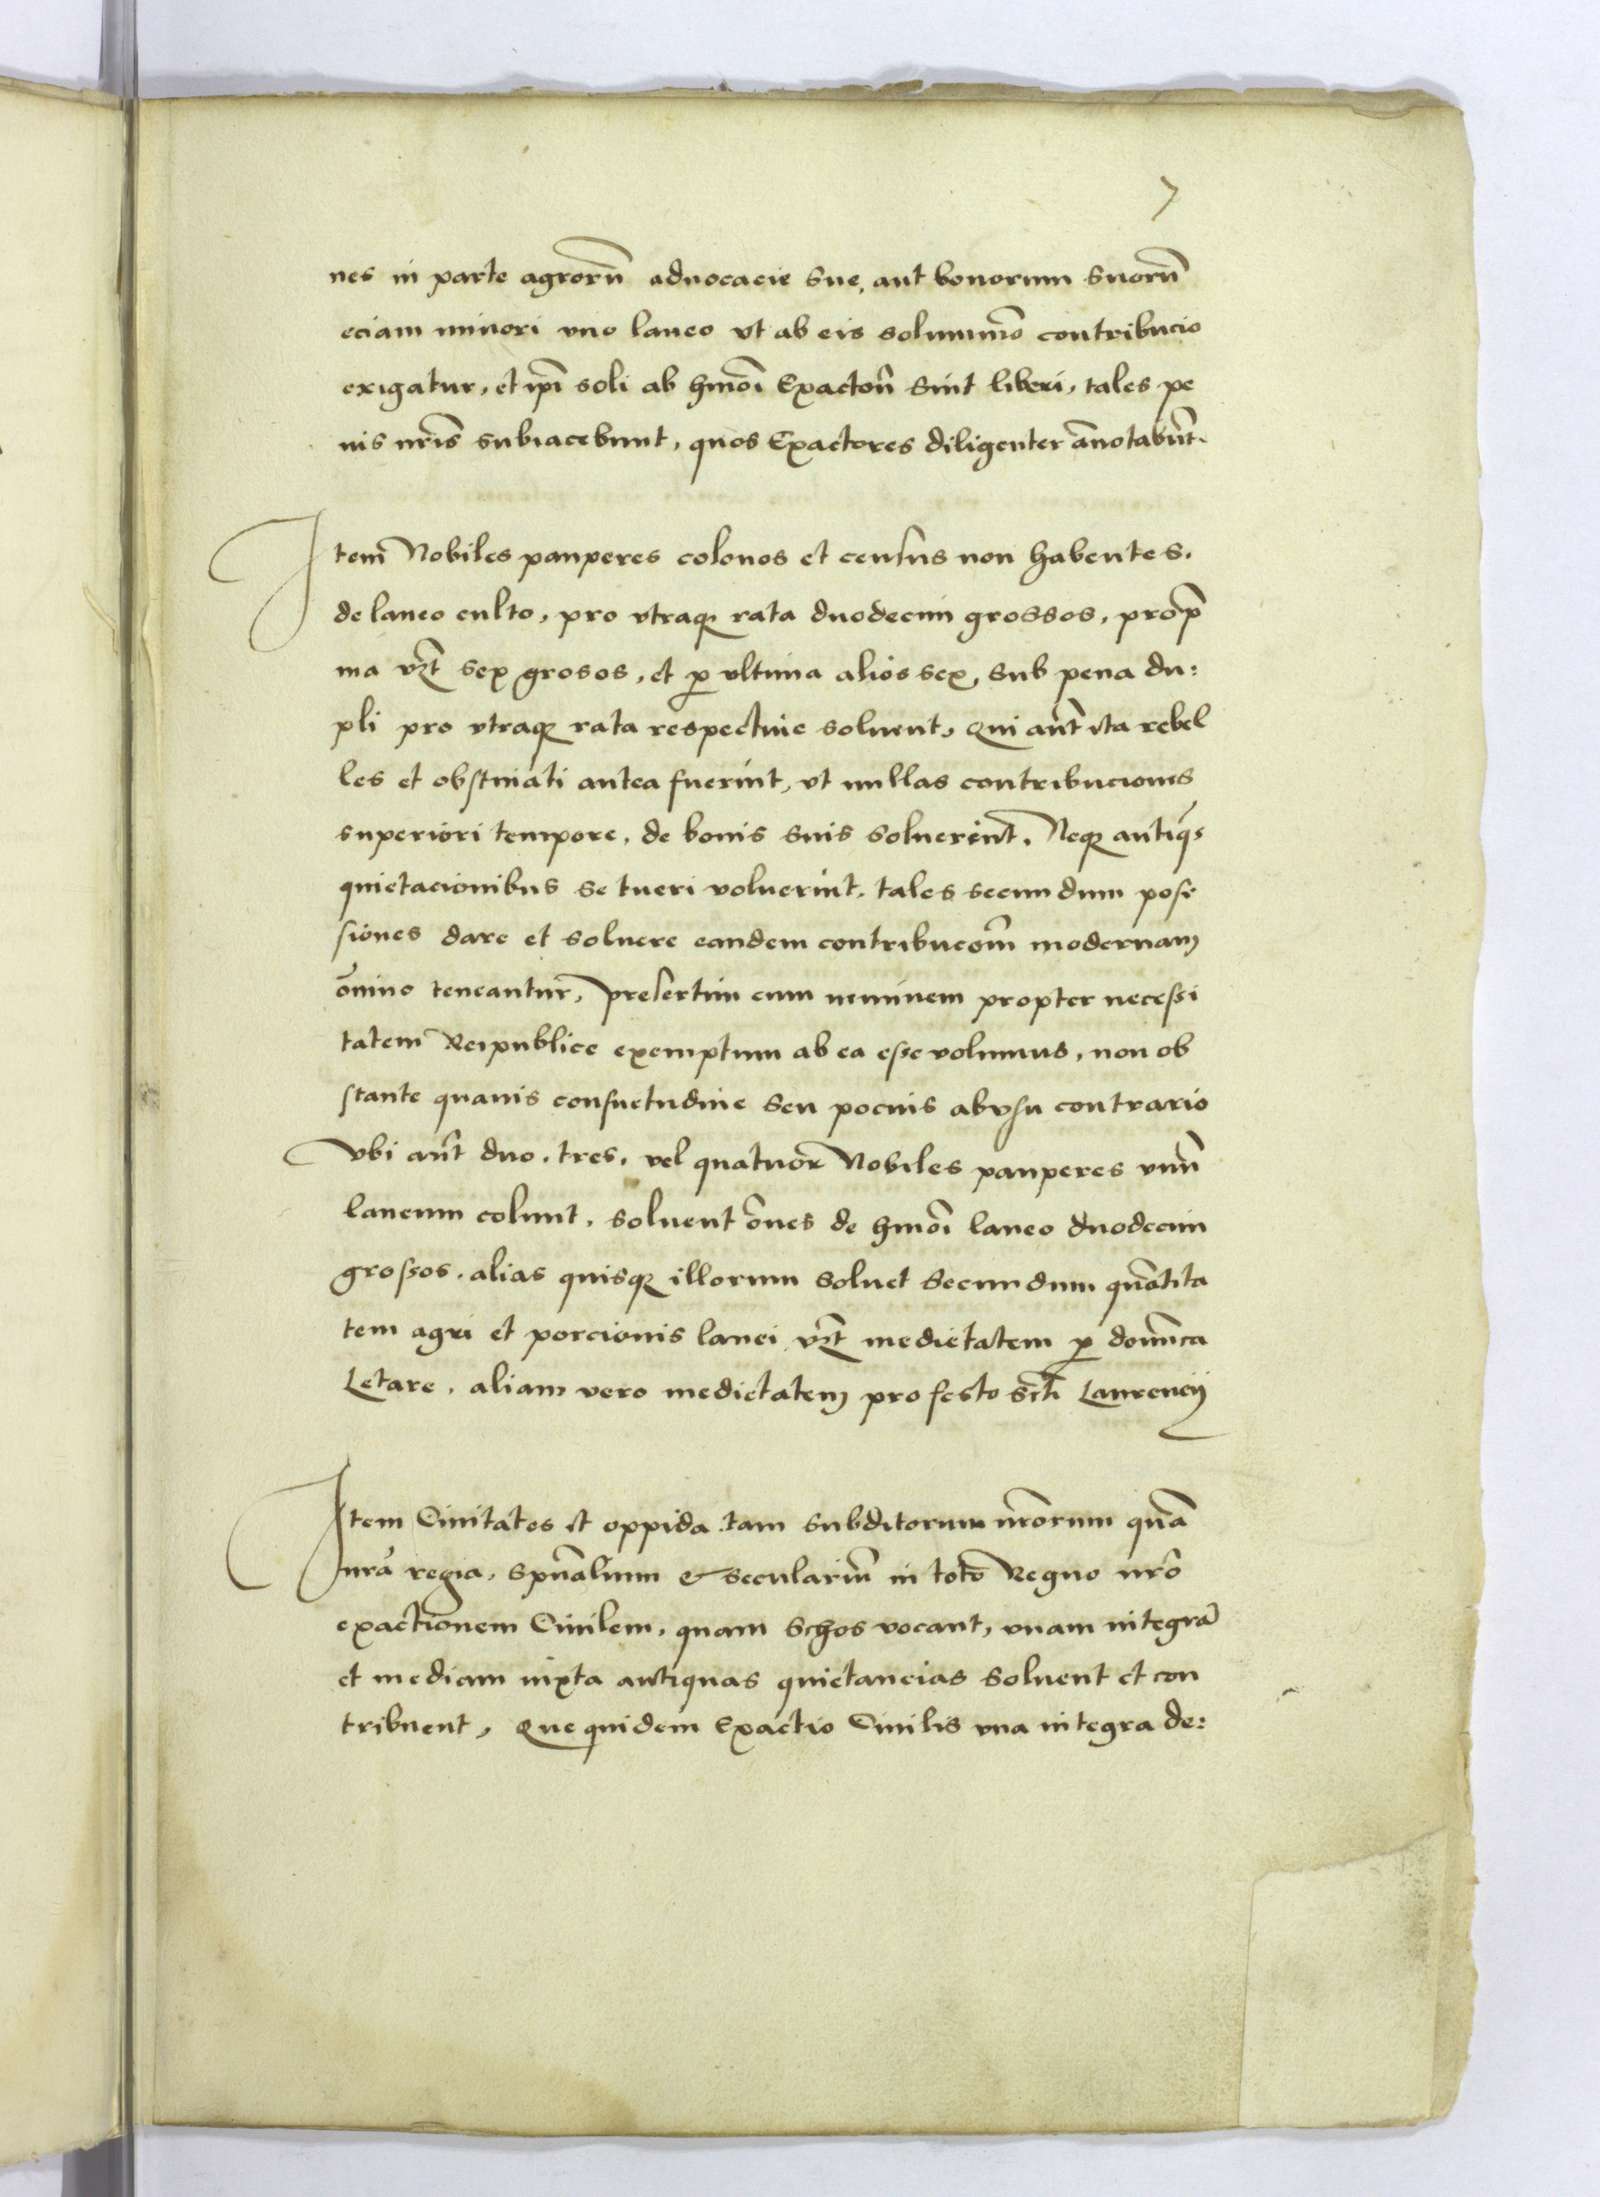 7
nes in parte agrorũ aduocacie sue, aut bonorum suorũ
eciam minori vno laneo vt ab eis solummõ contribucio
exigatur, et ip̃i soli ab hmõi Exactoñ sint liberi, tales pe
nis nr̃is subiacebunt, quos Exactores diligenter ãnotabũt.
Item Nobiles pauperes colonos et census non habentes.
de laneo culto, pro vtraqꝫ rata duodecim grossos, pro p̃
ma vꝫt sex grosos, et ꝓ vltima alios sex, sub pena du:
pli pro vtraqꝫ rata respectiue soluent, Qui aũt ita rebel
les et obstinati antea fuerint, vt nullas contribuciones
superiori tempore, de bonis suis soluerint. Neqꝫ antiqͥs
quietacionibus se tueri voluerint. tales secundum posse
siones dare et soluere eandem contribucom̃ modernam
õnino teneantur, presertim cum neminem propter necessi
tatem Reipublice exemptum ab ea esse volumus, non ob
stante quauis consuetudine seu pocius abusu contrario
Vbi aũt duo. tres. vel quatuor Nobiles pauperes vnũ
laneum colunt. soluent õnes de hmõi laneo duodecim
grossos. alias quisqꝫ illorum soluet secundum quãtita
tem agri et porcionis lanei vꝫt medietatem ꝓ domĩca
Letare. aliam vero medietatem pro festo sc̃ti Laurencij
Item Ciuitates et oppida tam subditorum nr̃orum quã
nr̃a regia, spũalium & secularium̃ in toto Regno nr̃o
exactionem Ciuilem, quam Schos vocant, vnam integrã
et mediam iuxta antiquas quietancias soluent et con
tribuent, Que quidem Exactio Ciuilis vna integra de: